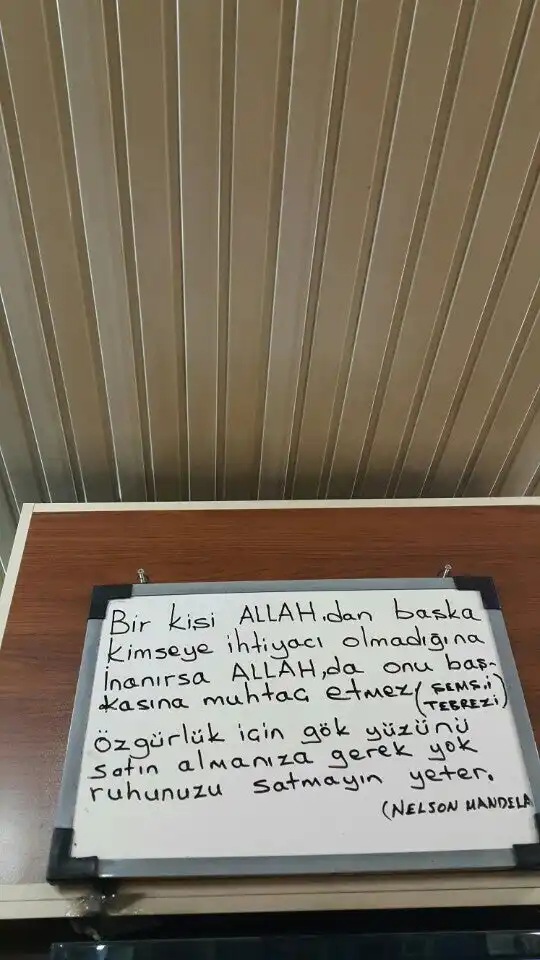 Bir kişi ALLAH.dan başka
kimseye ihtiyacı olmadığına
İnanırsa ALLAH,da onu baş-
kasına muhtaç etmez (ŞEMS.i
TEBREZİ)
Özgürlük için gök yüzünü
satın almanıza gerek yok
ruhunuzu satmayın yeter.
(NELSON MANDELA